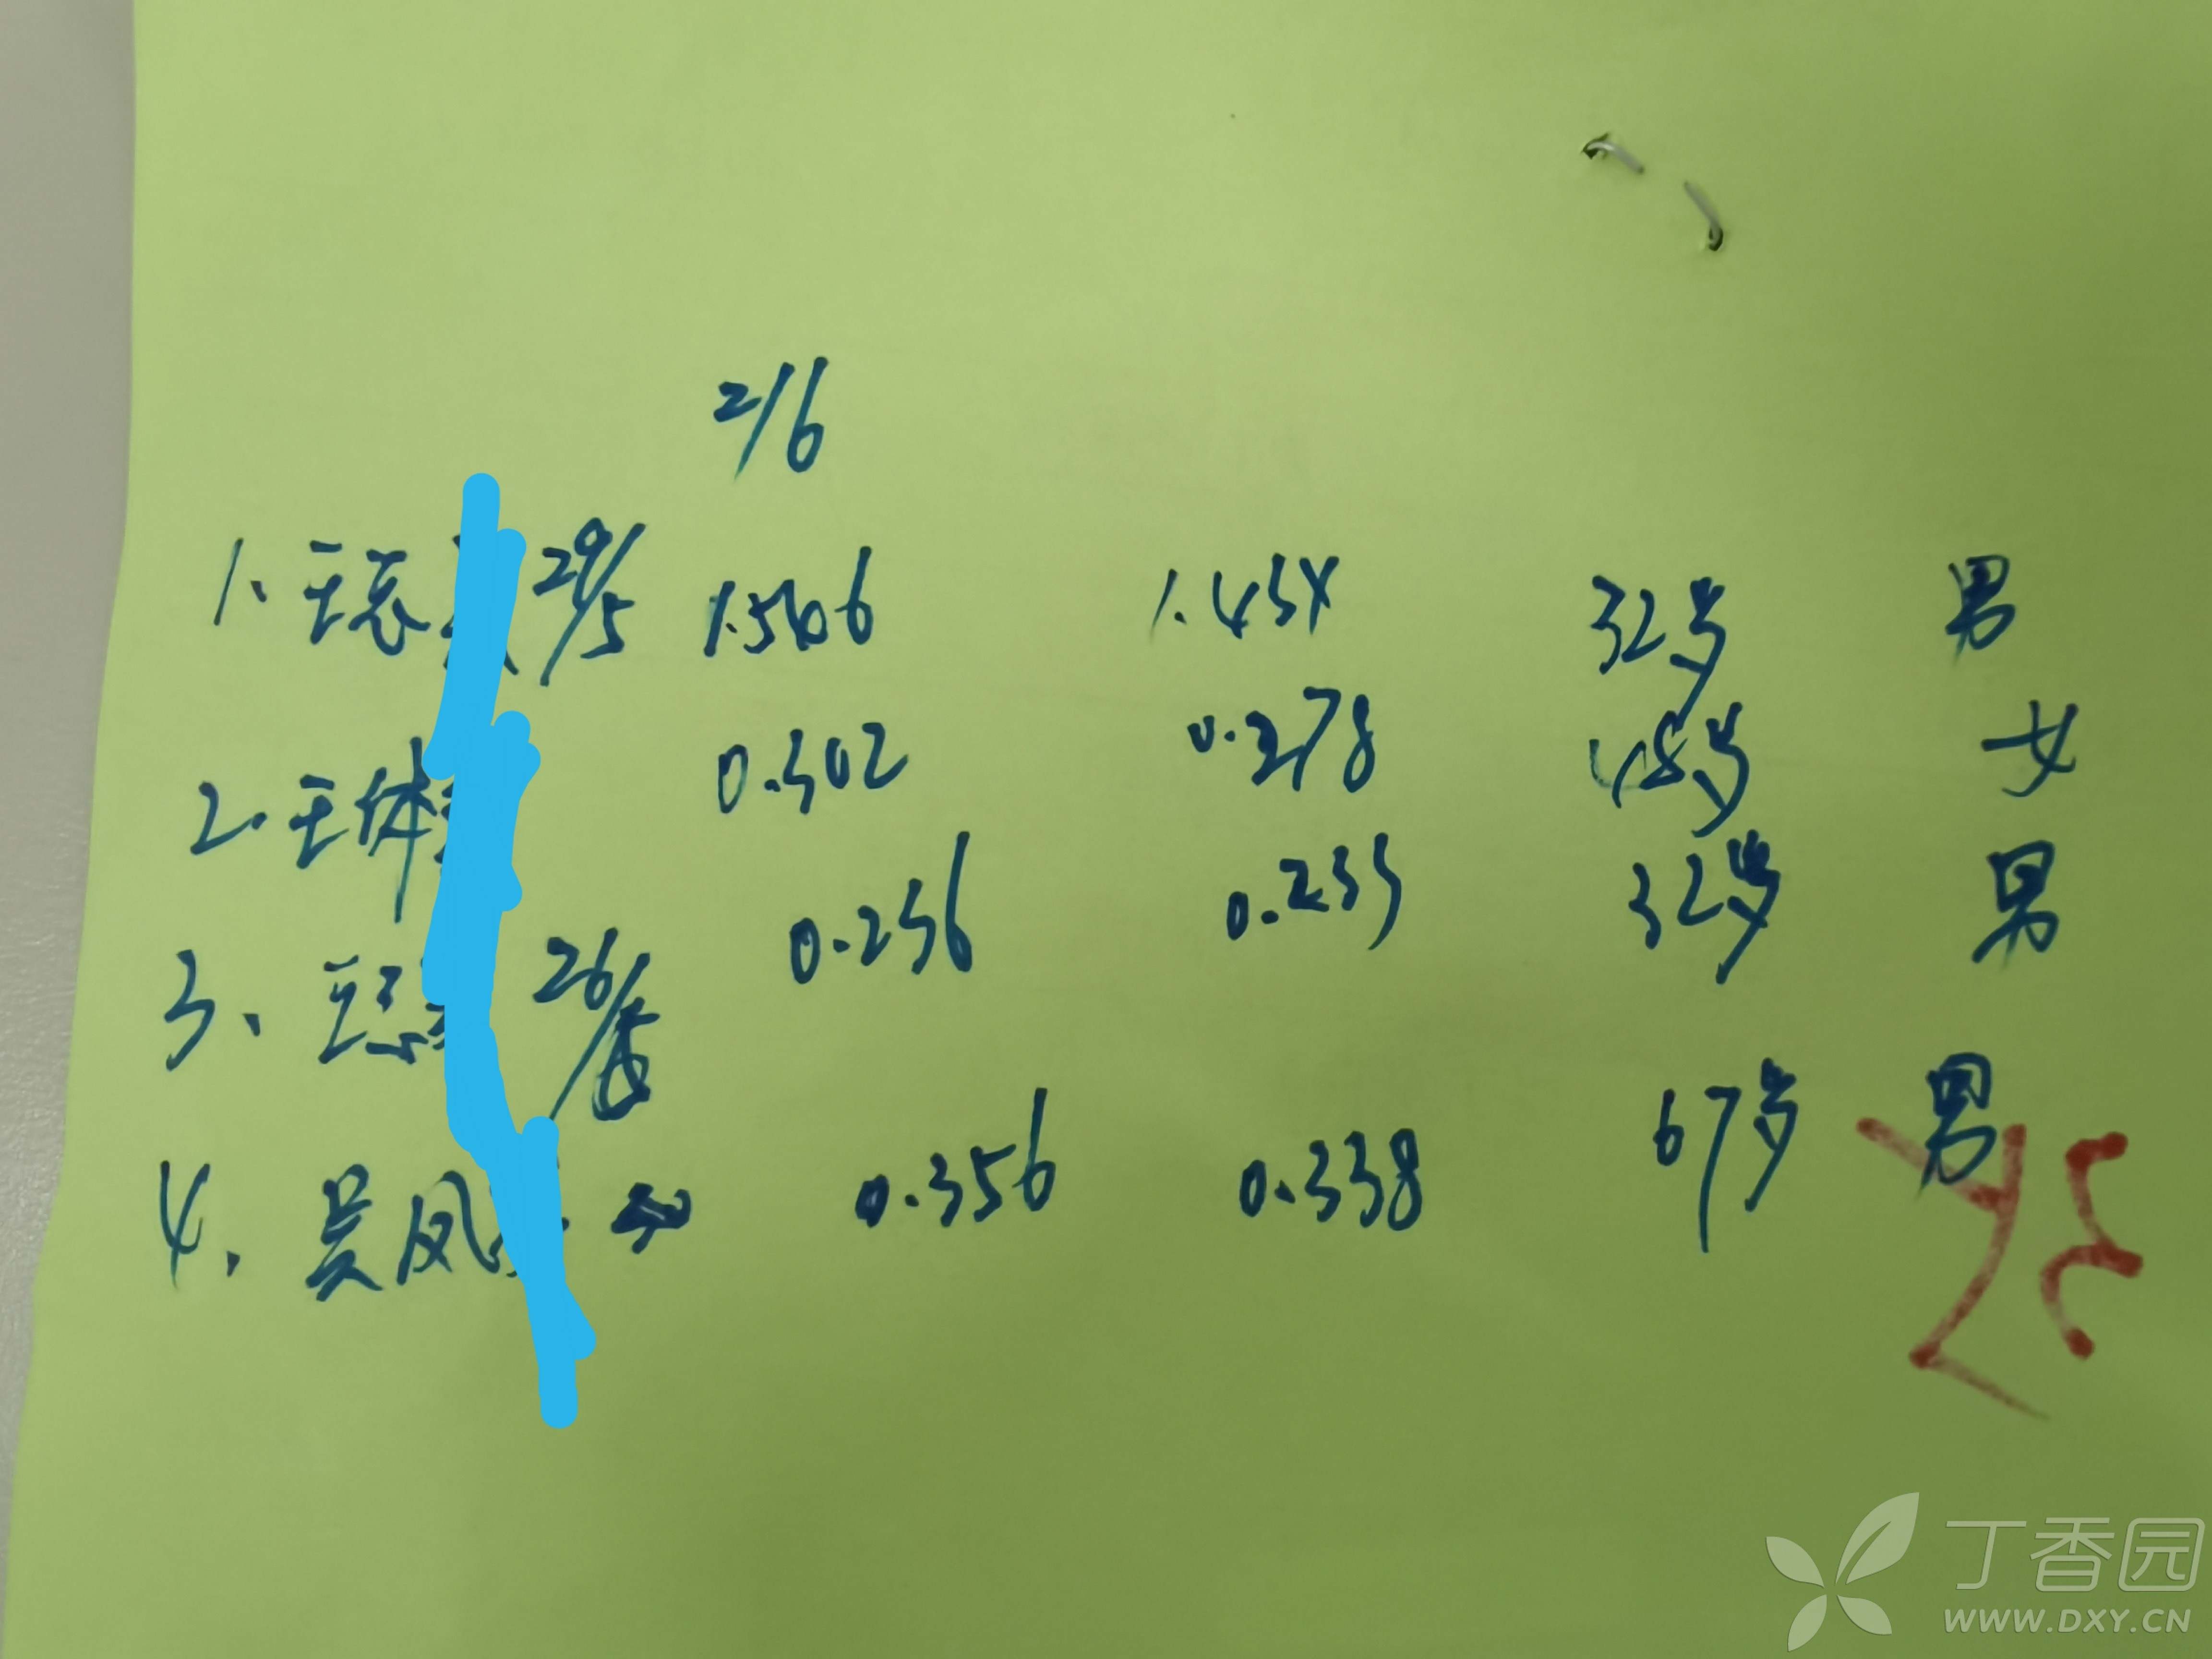 2/6
1. 王 29/5 1.5406 1.454 32岁 男
2. 王体 0.302 0.278 48岁 女
3、 王 26/5 0.256 0.233 32岁 男
4、 吴凤 0.356 0.338 67岁 男
丁香园
WWW.DXY.CN